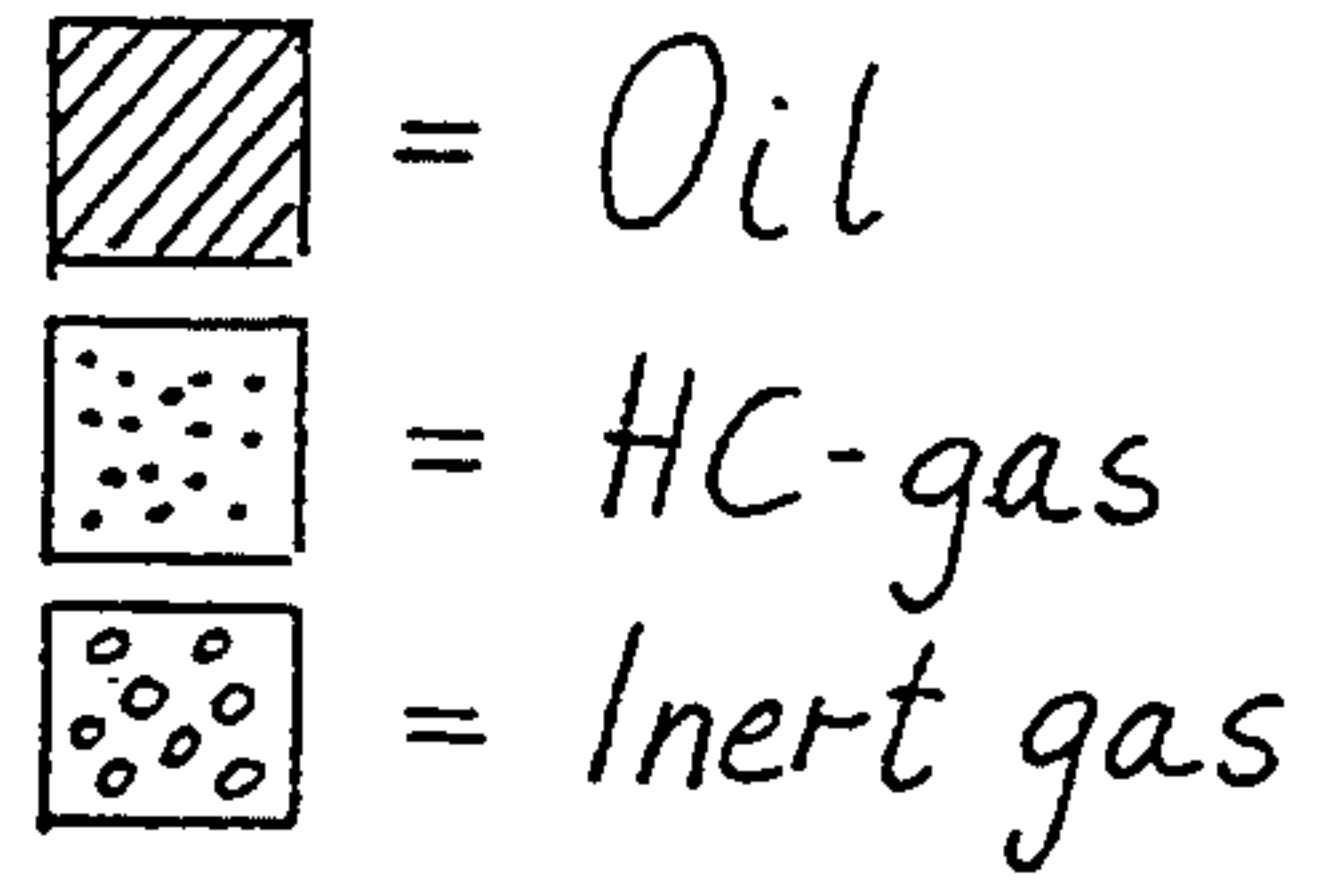 = Oil
= HC-gas
= Inert gas